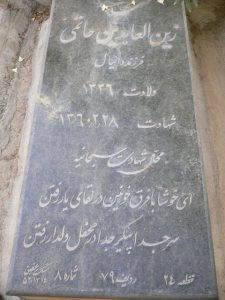 زین العابدین حاتمی
فرزند دانیال
ولادت ۱۳۳۶
شهادت ۱۳۶۰،۲،۲۸
محل شهادت سبحانیه
ای خوشا با فرق خونین در لقای یار رفتن
سر جدا پیکر جدا در محفل دلدار رفتن
قطعه ۲۴ ردیف ۷۹ شماره ۸